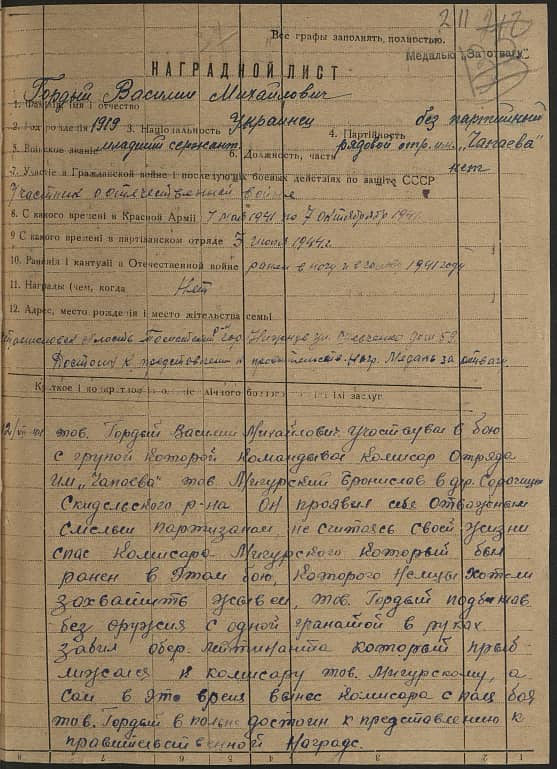 2 11
Все графы заполнять, полностью.
Медалью „За отвагу“
НАГРАДНОЙ ЛИСТ
Гордый Василий Михайлович
1. Фамилия имя і отчество
2. Год рождения 1919 3. Національность Украинец 4. Партійность без партийный
5. Воинское звание младший сержант. 6. Должность, часть рядовой отр. им. „Чапаева“
7. Участіе в Гражданской войне и последующих боевых действіях по защите СССР нет
Участник отечественной войны
8. С какого времени в Красной Армії 7 мая 1941 по 7 октября 1941
9 С какого времени в партизанском отряде 3 июня 1944 г.
10. Раненія і кантузіи в Отечественной войне ранен в ногу и в голову 1941 году
11. Награды (чем, когда Нет
12. Адрес, место рожденія і место жітельства семьі
область гор. ул. дом 59.
Достоин к представлению к правительств. Нагр. Медаль за отвагу.
Краткое і конкретное лічного боевого ілі заслуг
тов. Гордый Василий Михайлович участвувал в бою
с групой которой командывал комисар отряда
им „Чапаева“ тов Мигурский Бронислав в дер.
Скидельского р-на он проявил себя отважным
смелым партизаном, не считаясь своей жизни
спас комисара Мигурского который был
ранен в этом бою, которого немцы хотели
захватить живьем, тов. Гордый подбежав
без оружия с одной гранатой в руках
забил обер. лейтинанта который приб-
лижался к комисару тов. Мигурскому, а
сам в это время вынес комисара с поля боя
тов. Гордый в полне достоин к представлению к
правительственной награде.
8 7 6 5 4 3 2 1